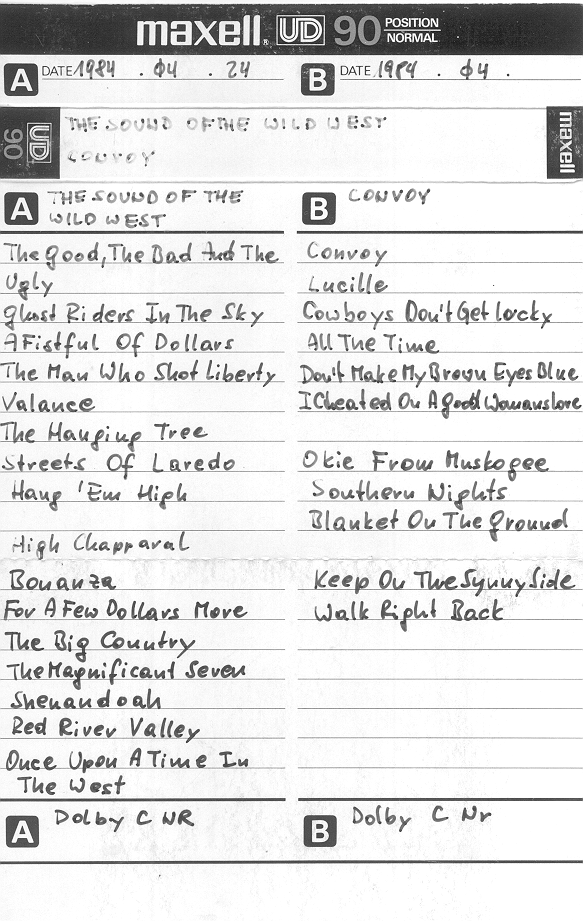 maxell. UD 90 POSITION NORMAL
A DATE 1984 . 04 . 24
B DATE 1984 . 04 .
UD 90
THE SOUND OF THE WILD WEST
CONVOY
maxell
A THE SOUND OF THE
WILD WEST
B CONVOY
The Good, The Bad And The
Ugly
Ghost Riders In The Sky
A Fistful Of Dollars
The Man Who Shot Liberty
Valance
The Hanging Tree
Streets Of Laredo
Hang 'Em High
High Chapparal
Bonanza
For A Few Dollars More
The Big Country
The Magnificant Seven
Shenandoah
Red River Valley
Once Upon A Time In
The West
Convoy
Lucille
Cowboys Don't Get Lucky
All The Time
Don't Make My Brown Eyes Blue
I Cheated On A good Womans love
Okie From Muskogee
Southern Nights
Blanket On The Ground
Keep On The Synny Side
Walk Right Back
A Dolby C NR
B Dolby C Nr